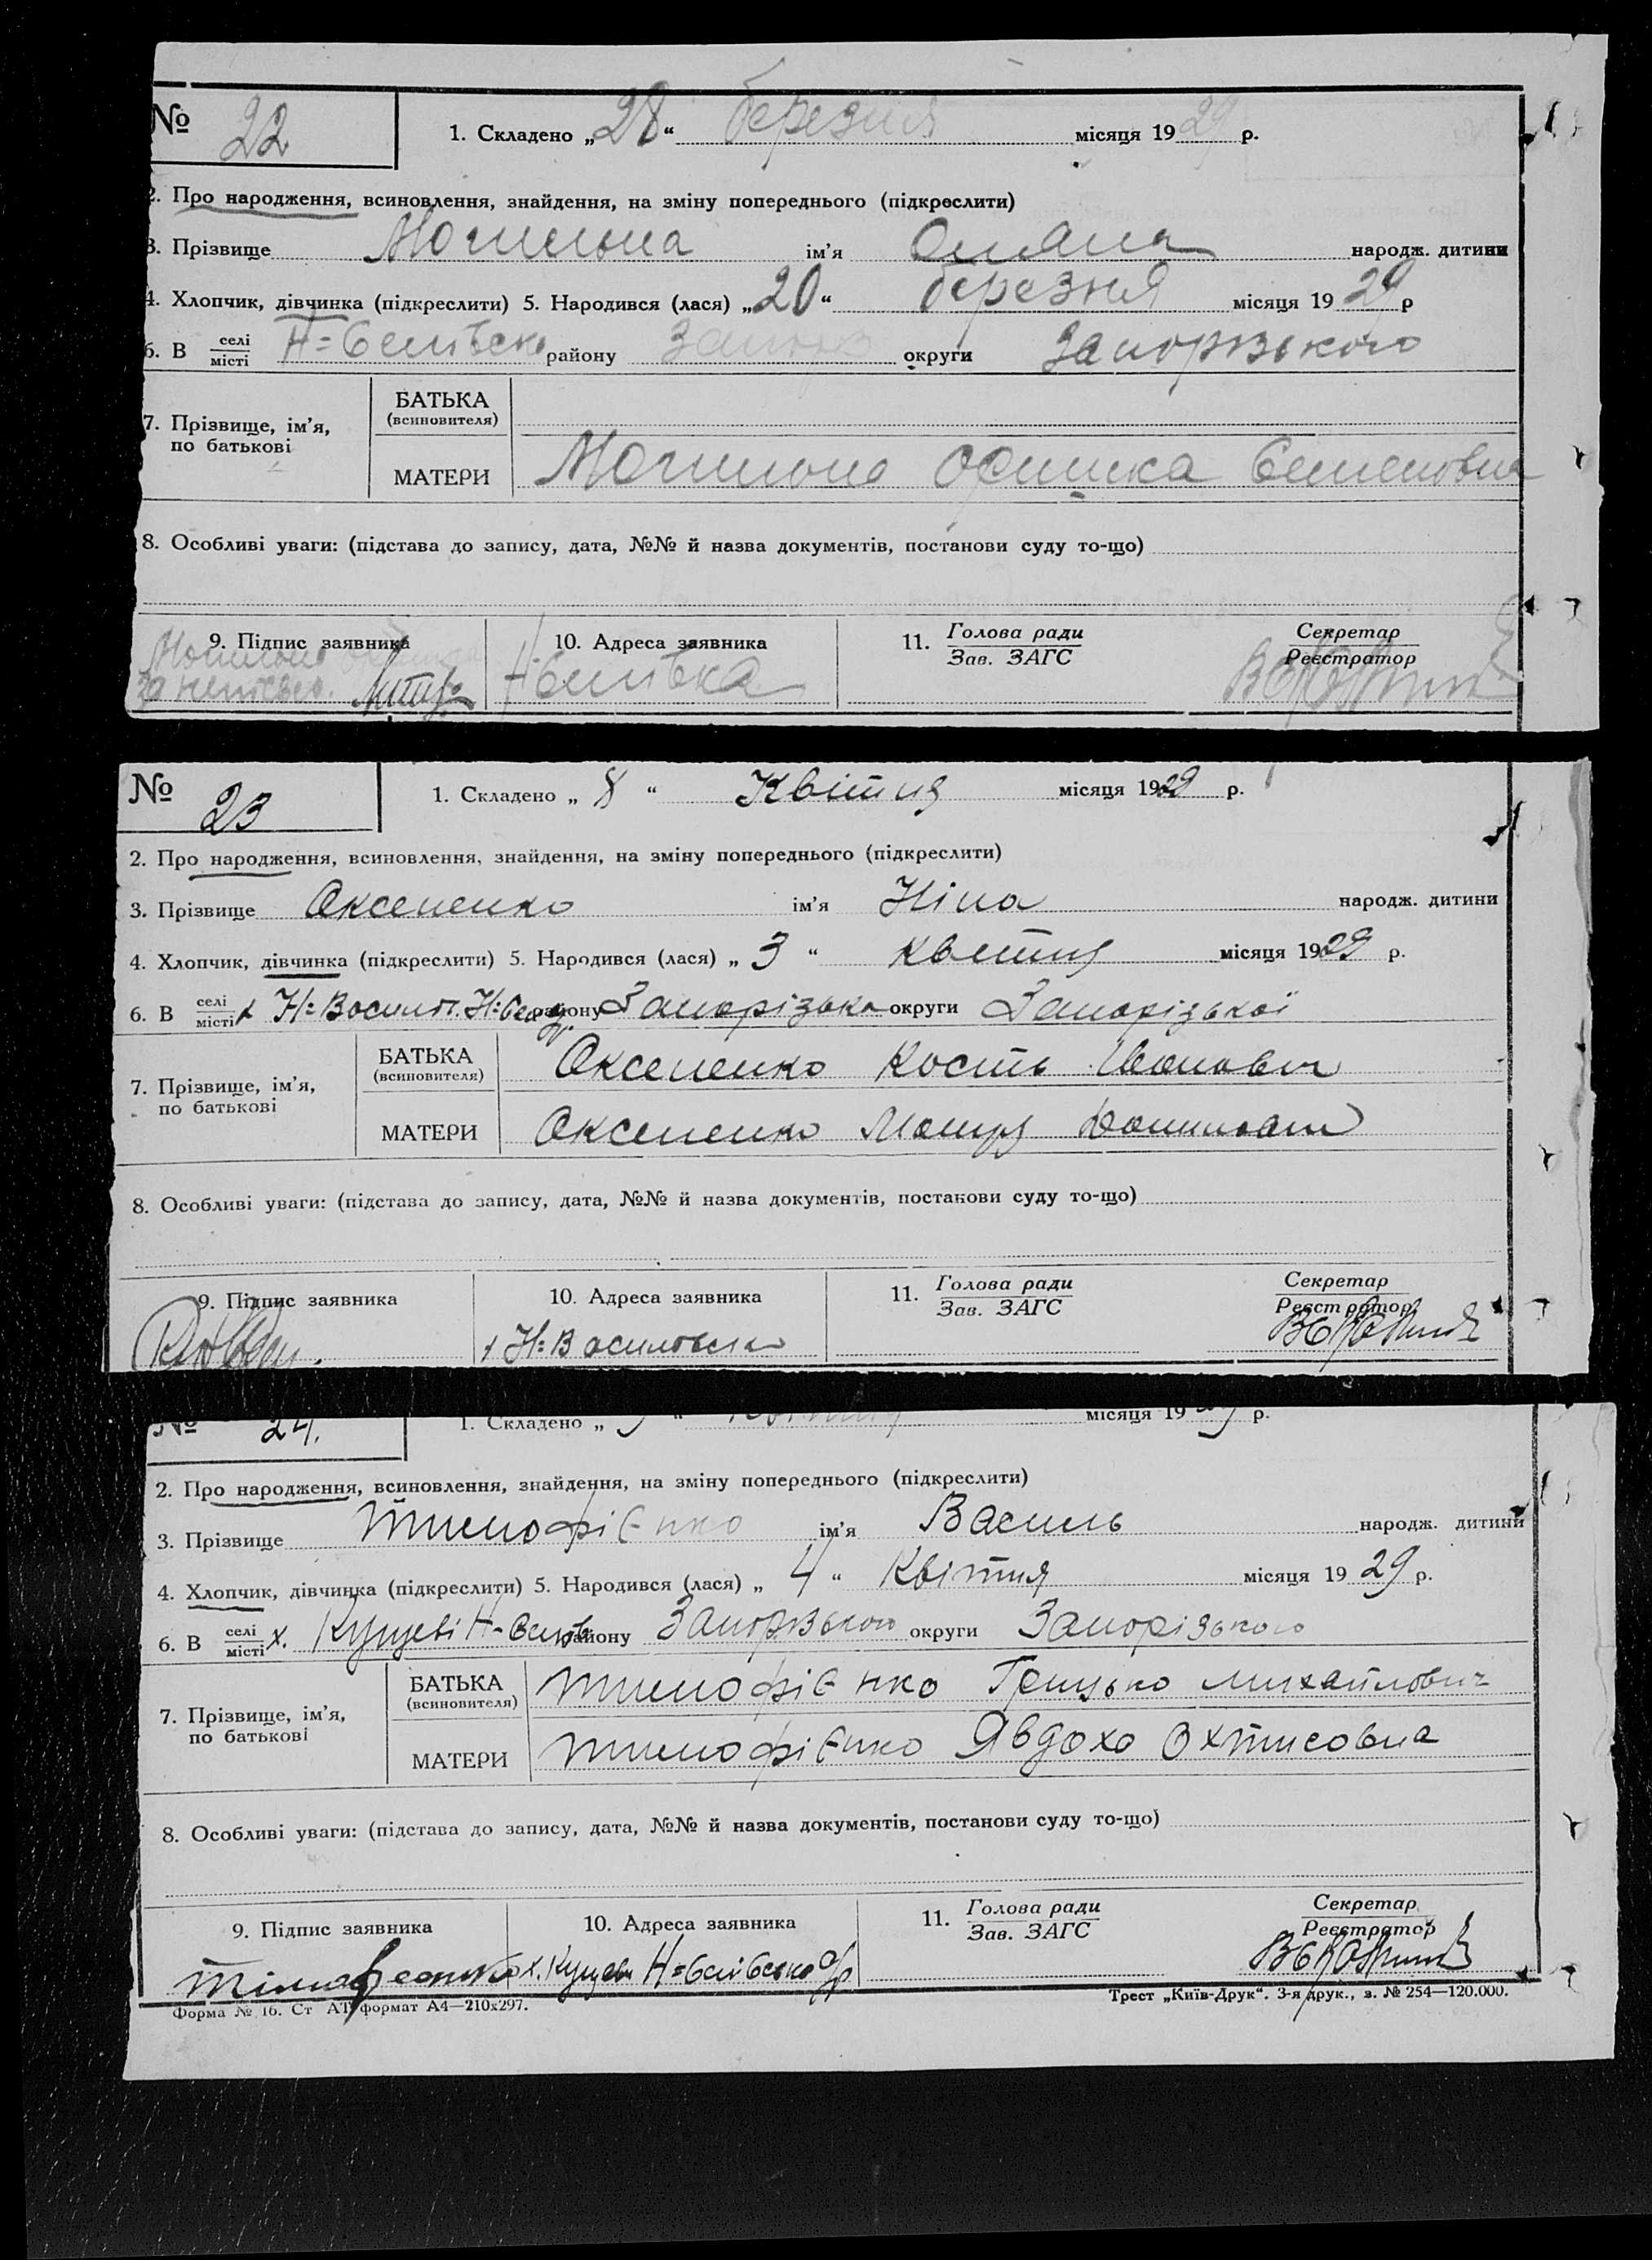 № 22
1. Складено „28“ березня місяця 1929 р.
2. Про народження, всиновлення, знайдення, на зміну попереднього (підкреслити)
3. Прізвище Могильна ім’я Оляна народж. дитини
4. Хлопчик, дівчинка (підкреслити) 5. Народився (лася) „20“ березня місяця 1929 р
6. В селі місті району округи Запорізького
7. Прізвище, ім’я, по батькові
БАТЬКА (всиновителя)
МАТЕРИ Могильна Оришка Семеновна
8. Особливі уваги: (підстава до запису, дата, №№ й назва документів, постанови суду то-що)
9. Підпис заявника 10. Адреса заявника 11. Голова ради Зав. ЗАГС Секретар Реєстратор
Могильна
№ 23
1. Складено „ 8 “ Квітня місяця 1929 р.
2. Про народження, всиновлення, знайдення, на зміну попереднього (підкреслити)
3. Прізвище Аксененко ім’я Ніна народж. дитини
4. Хлопчик, дівчинка (підкреслити) 5. Народився (лася) „ 3 “ квітня місяця 1929 р.
6. В селі місті х Н=Василів. району Запорізька округи Запорізької
7. Прізвище, ім’я, по батькові
БАТЬКА (всиновителя) Аксененко Кость Іванович
МАТЕРИ Аксененко
8. Особливі уваги: (підстава до запису, дата, №№ й назва документів, постанови суду то-що)
9. Підпис заявника 10. Адреса заявника 11. Голова ради Зав. ЗАГС Секретар Реєстратор
х Н=Василівська
№ 24.
1. Складено „ “ квітня місяця 1929 р.
2. Про народження, всиновлення, знайдення, на зміну попереднього (підкреслити)
3. Прізвище Тимофієнко ім’я Василь народж. дитини
4. Хлопчик, дівчинка (підкреслити) 5. Народився (лася) „ 4 “ Квітня місяця 1929 р.
6. В селі місті х. району Запорізького округи Запорізького
7. Прізвище, ім’я, по батькові
БАТЬКА (всиновителя) Тимофієнко Грицько Михайлович
МАТЕРИ Тимофієнко Явдоха
8. Особливі уваги: (підстава до запису, дата, №№ й назва документів, постанови суду то-що)
9. Підпис заявника 10. Адреса заявника 11. Голова ради Зав. ЗАГС Секретар Реєстратор
Форма № 16. Ст АТ формат А4—210х297.
Трест „Київ-Друк“. 3-я друк., з. № 254—120.000.